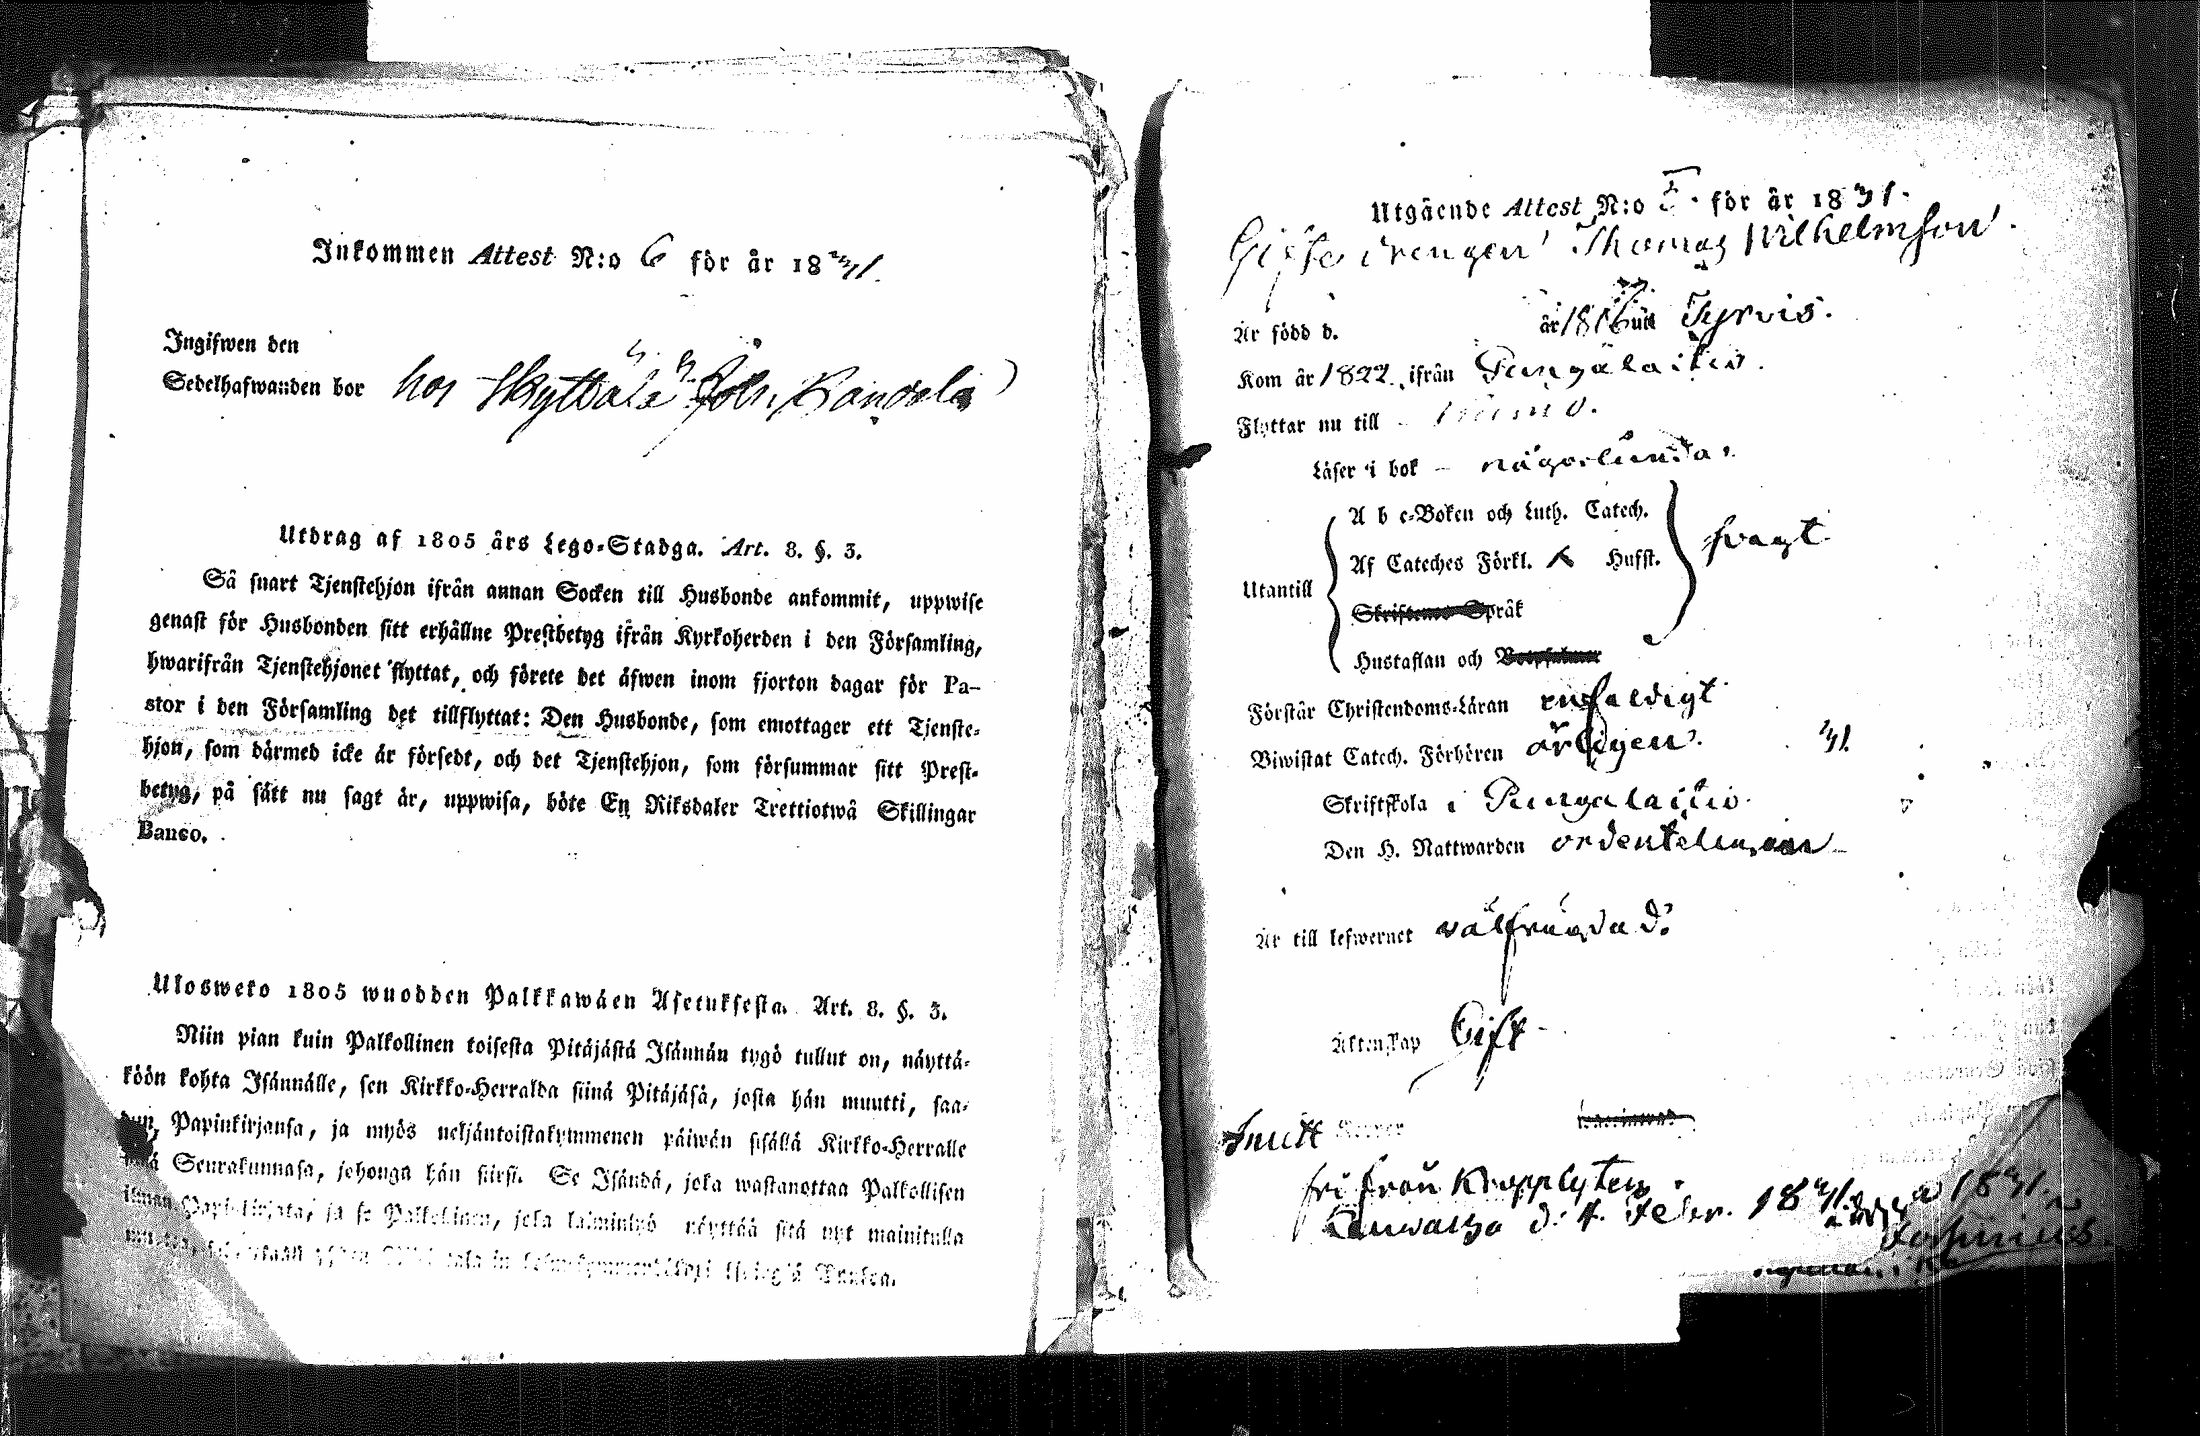 Inkommen Attest N:o 6 för år 1831.
Ingifwen den
Sedelhafwanden bor hos Skyttälä
Utdrag af 1805 års Lego-Stadga. Art. 8. §. 3.
Så snart Tjenstehjon ifrån annan Socken till Husbonde ankommit, uppwise
genast för Husbonden sitt erhållne Prestbetyg ifrån Kyrkoherden i den Församling,
hwarifrån Tjenstehjonet flyttat, och förete det äfwen inom fjorton dagar för Pa-
stor i den Församling det tillflyttat: Den Husbonde, som emottager ett Tjenste-
hjon, som därmed icke är försedt, och det Tjenstehjon, som försummar sitt Prest-
betyg, på sätt nu sagt är, uppwisa, böte En Riksdaler Trettiotwå Skillingar
Banco.
Ulosweto 1805 wuodden Palkkawäen Asetuksesta. Art. 8. §. 3.
Niin pian kuin Palkollinen toisesta Pitäjästä Isännän tygö tullut on, näyttä-
köön kohta Isännälle, sen Kirkko-Herralda siinä Pitäjäsä, josta hän muutti, saa-
dun, Papinkirjansa, ja myös neljäntoistakymmenen päiwän sisällä Kirkko-Herralle
siinä Seurakunnasa, johonga hän siirsi. Se Isändä, joka wastanottaa Palkollisen
ilman Papinkirjata, ja se Palkollinen, joka laiminlyö näyttää sitä nyt mainitulla
Utgående Attest N:o för år 1831.
Gifte drengen Thomas Wilhelmson
Är född d. år 1806 uti Tyrvis.
Kom år 1822 ifrån Pungalaitio.
Flyttar nu till
Läser i bok - någorlunda
A b c-Boken och Luth. Catech.
Af Cateches Förkl. Husst. svagt
Utantill
Skriftenes Språk
Hustaflan och
Förstår Christendoms-Läran enfaldigt
Biwistat Catech. Förhören årligen.
Skriftskola i Pungalaitio
Den H. Nattwarden ordenteligen
Är till lefwernet välfrägdad.
Äktenskap Gift
fri från Kopplyten
d. 4. Febr. 1831.